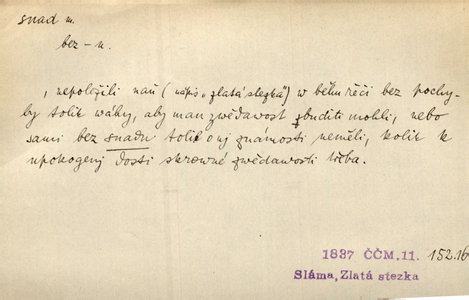 snad m.
bez – u.
, nepoložili naň (nápis „zlatá stezka") w běhu řěči bez pochy-
by tolik wáhy, aby man zwědawost zbuditi mohli, nebo
sami bez snadu tolik o nj známosti neměli, kolik k
upokogenj dosti skrowné zwědawosti třeba.
1837 ČČM. 11. 152.16
Sláma, Zlatá stezka